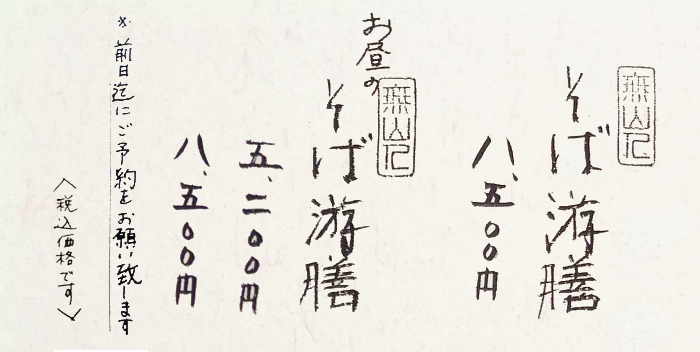 無山人
そば游膳
八、五〇〇円
お昼の
無山人
そば游膳
五、二〇〇円
八、五〇〇円
※前日迄にご予約をお願い致します
〈税込価格です〉